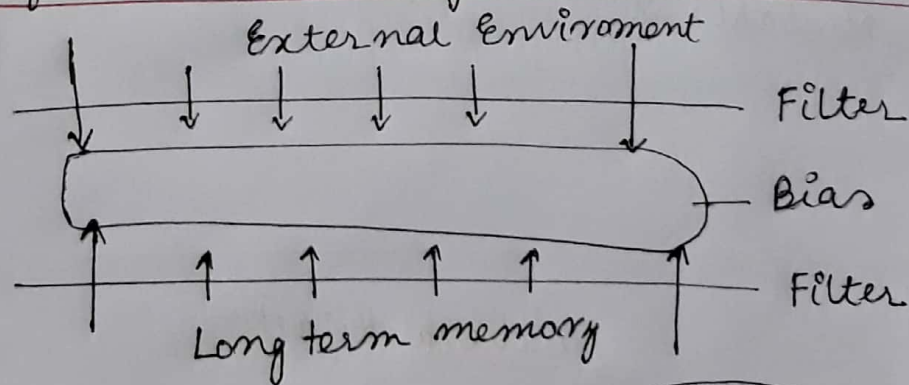 External Enviroment
Filter
Bias
Filter
Long term memory